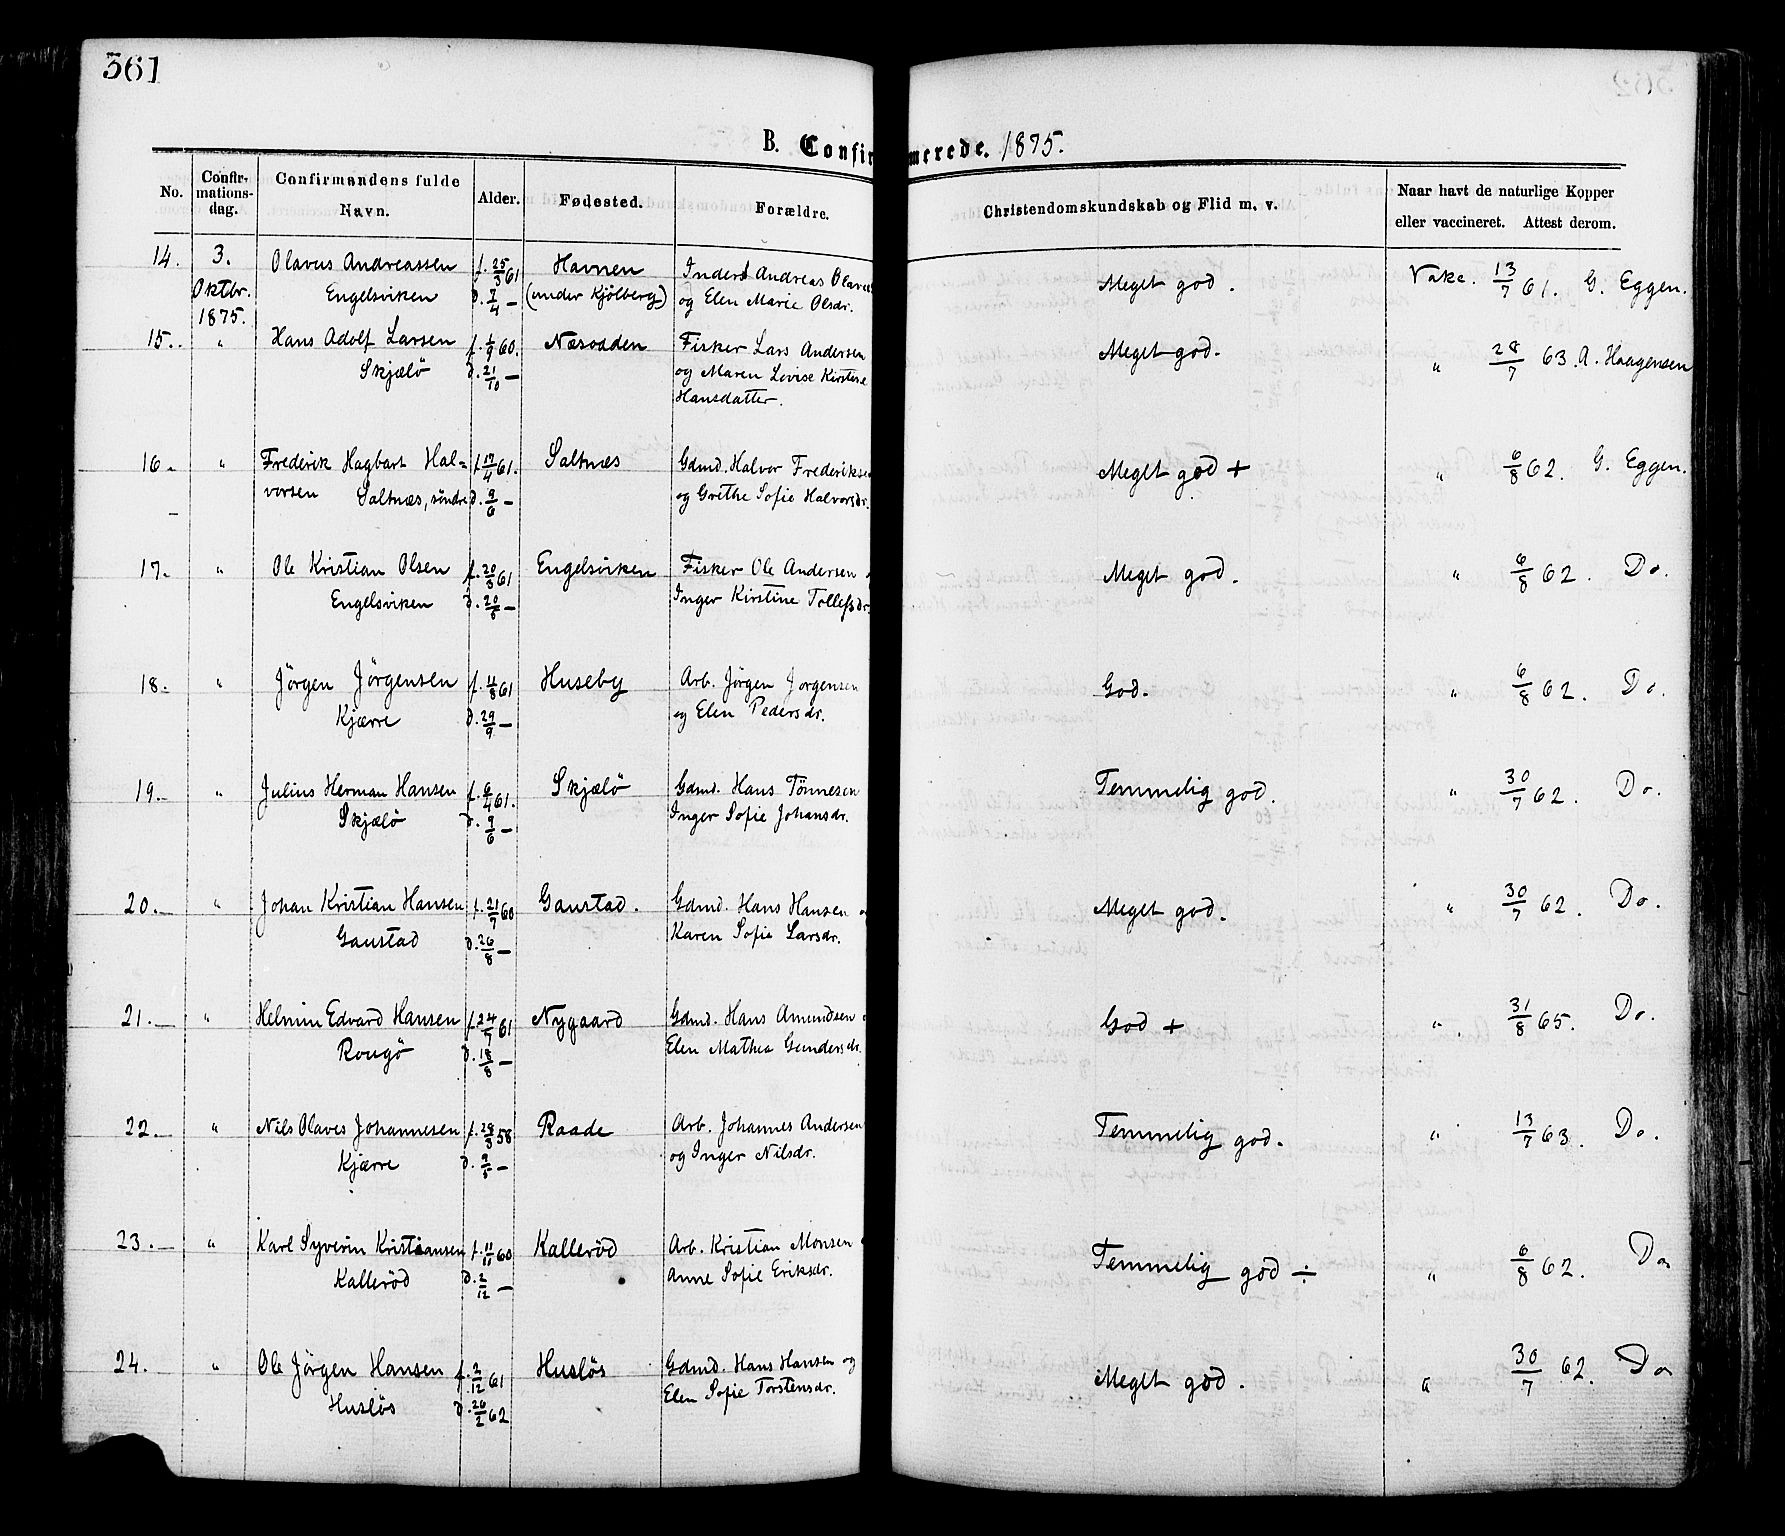 361
B. Confirmerede. 1875.
No. Confir-mations-dag. Confirmandens fulde Navn. Alder. Fødested. Forældre. Christendomskundskab og Flid m. v. Naar havt de naturlige Kopper eller vaccineret. Attest derom.
14. 3. Olavus Andreassen f. 25/3 61 Havnen Inderst Andreas Olaves Meget god. Vakc. 13/7 61. G. Eggen.
Oktbr. Engelsviken d. 7/4 — (under Kjölberg) og Elen Marie Olsdr.
1875.
15. " Hans Adolf Larsen f. 1/9 60. Næsodden Fisker Lars Andersen Meget god. " 28/7 63. A. Haagensen
Skjælö d. 21/10 — og Maren Lovise Kirstine
Hansdatter.
16. " Frederik Hagbart Hal= f. 17/4 61. Saltnæs Gdmd. Halvor Frederikse Meget god + " 6/8 62. G. Eggen.
vorsen Saltnæs, söndre d. 9/6 — og Grethe Sofie Halvorsdr.
17. " Ole Kristian Olsen f. 20/8 61 Engelsviken Fisker Ole Andersen Meget god. " 6/8 62. Do.
Engelsviken d. 20/8 — Inger Kirstine Tollefsdr.
18. " Jörgen Jörgensen f. 11/8 61 Huseby Arb. Jörgen Jorgensen God. " 6/8 62. Do.
Kjærre d. 29/9 — og Elen Pedersdr.
19. " Julius Herman Hansen f. 6/4 61. Skjælö Gdmd. Hans Tönnesen Temmelig god. " 30/7 62. Do.
Skjælö d. 9/6 — Inger Sofie Johansdr.
20. " Johan Kristian Hansen f. 21/7 60 Gaustad. Gdmd. Hans Hansen Meget god. " 30/7 62. Do.
Gaustad d. 26/8 — Karen Sofie Larsdr.
21. " Helmin Edvard Hansen f. 24/7 61 Nygaard Gdmd. Hans Amundsen God + " 31/8 65. Do.
Rougö d. 18/8 — Elen Mathea Gundersdr.
22. " Nils Olaves Johannesen f. 28/3 58 Raade Arb. Johannes Andersen Temmelig god. " 13/7 63. Do.
Kjærre d. 9/5 — og Inger Nilsdr.
23. " Karl Syverin Kristiansen f. 11/11 60 Kalleröd Arb. Kristian Monsen Temmelig god ÷ " 6/8 62. Do
Kalleröd d. 2/12 — Anne Sofie Eriksdr.
24. " Ole Jörgen Hansen f. 2/12 61 Huslös Gdmd. Hans Hansen og Meget god. " 30/7 62. Do
Huslös d. 26/2 62 Elen Sofie Torstensdr.